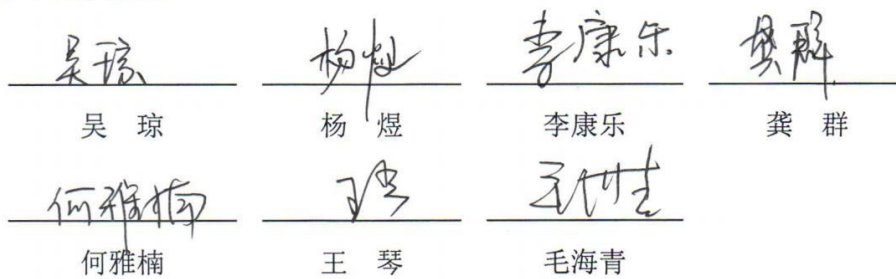 吴琼 杨煜 李康乐 龚群
吴 琼 杨 煜 李康乐 龚 群
何雅楠 王琴 毛海青
何雅楠 王 琴 毛海青